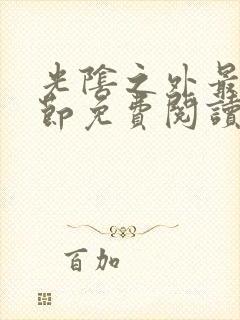 光陰之外最
節免費閱讀
百加